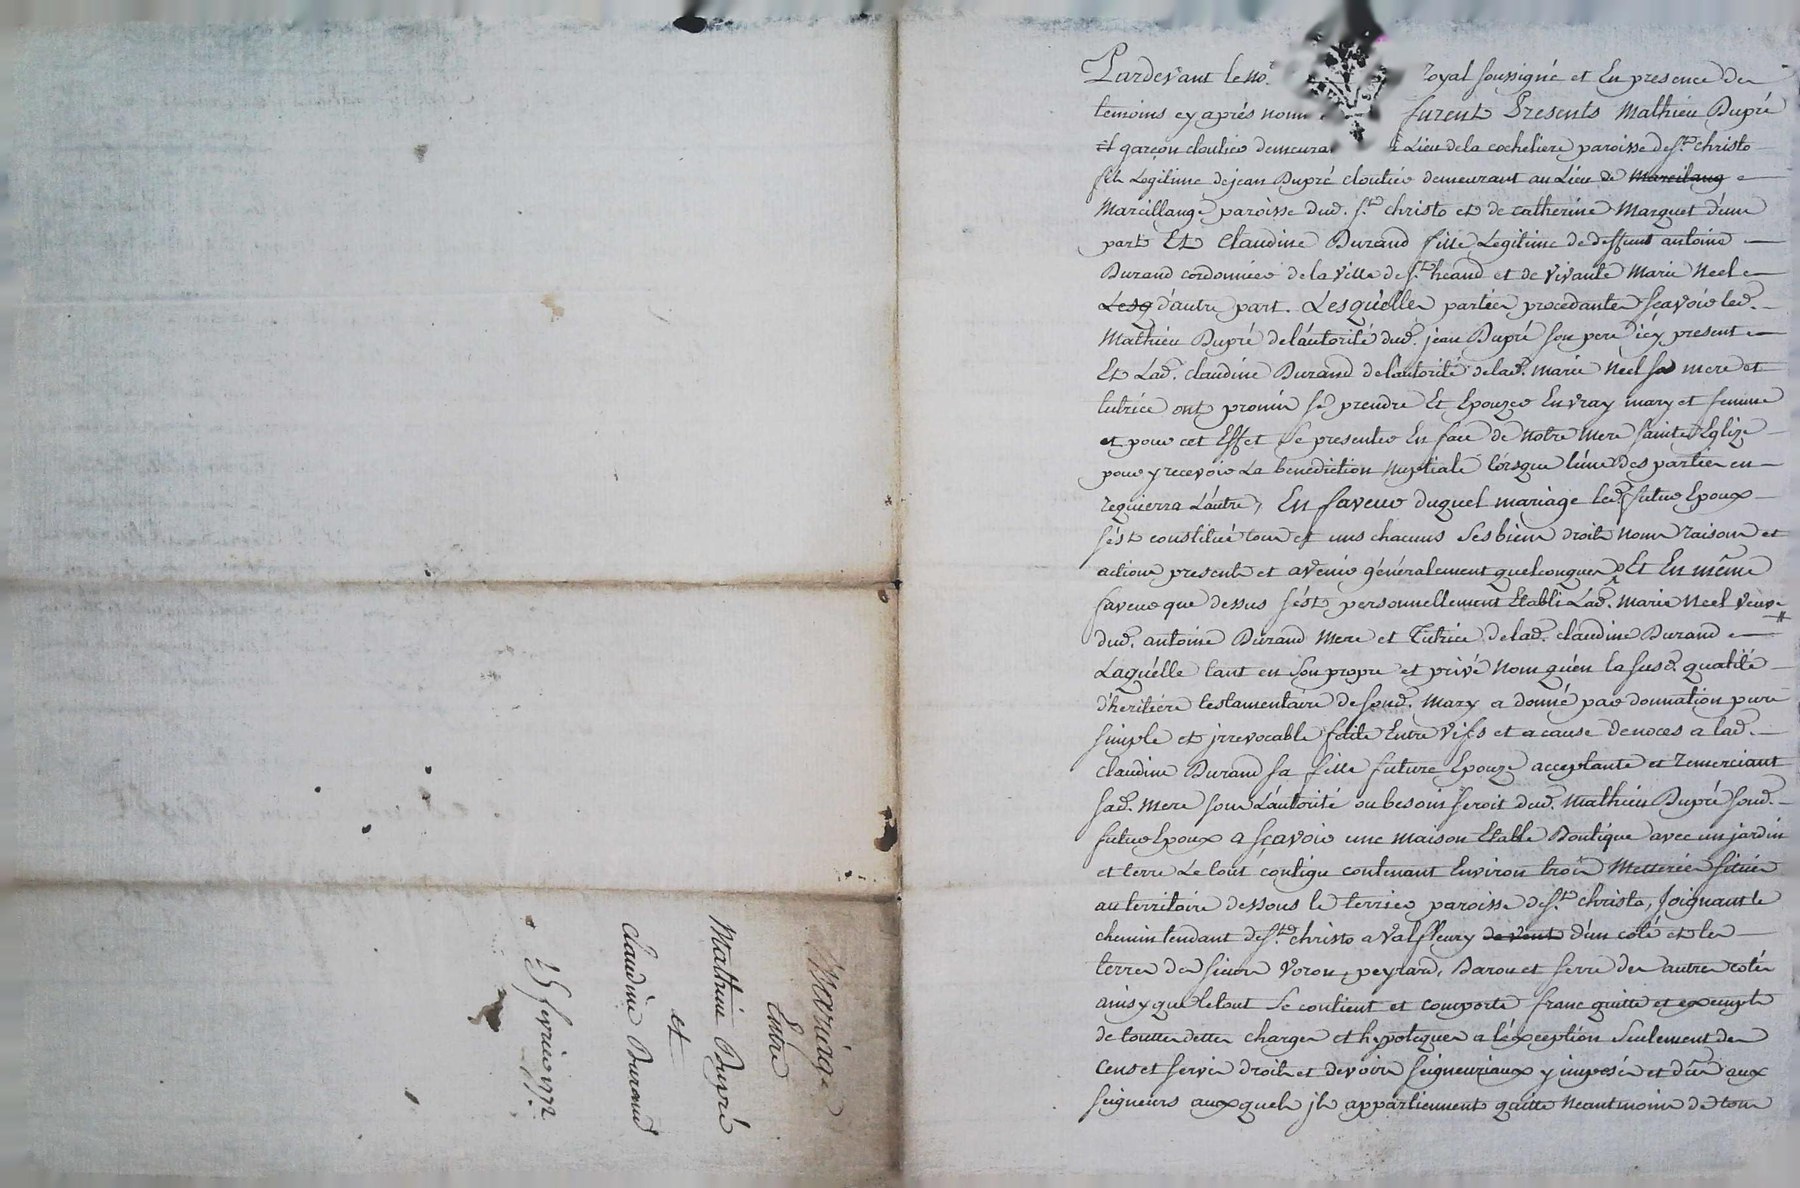 Mariage
Entre
Mathieu Dupré
et
Claudine Durand
25 fevrier 1772
Pardevant le No.re Royal soussigné et En presence des
temoins cy aprés nom furent Presents Mathieu Dupré
garçon cloutier demeura Lieu dela cocheliere paroisse de St. christo
fils Legitime de jean Dupré cloutier demeurant au Lieu de Marcilang
Marcillange paroisse dud. St. christo et de catherine Marquet d'une
part Et Claudine Durand fille Legitime de deffunt antoine
Durand cordonnier de la ville de St. héand et de vivante Marie Neel
Lesq d'autre part. Lesquelles parties procedantes sçavoir led.
Mathieu Dupré de lautorité dud. jean Dupré son pere icy present
Et Lad. Claudine Durand de lautorité de lad. marie Neel sa mere et
tutrice ont promis se prendre Et Epouzer En vray mary et femme
et pour cet Effet se presenter En face de Notre Mere sainte Eglize
pour y recevoir La benediction Nuptiale lorsque l'une des parties en
requierra L'autre, En faveur duquel mariage led. futur Epoux
s'est constitué tous et uns chacuns ses biens droits Noms raisons et
actions presents et avenir généralement quelconques Et En même
faveur que dessus s'est personnellement Etabli Lad. Marie Neel veuve
dud. antoine Durand Mere et Tutrice de lad. claudine Durand
Laquelle tant en son propre et privé Nom qu'en la susd. qualité
d'heritiere testamentaire de sond. Mary a donné par donnation pure
simple et jrrevocable faite Entre vifs et a cause de noces a lad.
claudine Durand sa fille future Epouze acceptante et remerciant
sad. mere sous L'autorité ou besoin seroit dud. Mathieu Dupré sond.
futur Epoux a sçavoir une maison Etable Boutique avec un jardin
et terre Le tout contigu contenant Environ trois Metterées situés
au territoire dessous le terrier paroisse de St. christo, joignant le
chemin tendant de St. christo a valfleury de vent d'un coté et les
terres de simon voron, peyrard, Barou et ferré des autres cotés
ainsy que le tout se contient et comporte franc quitte et exempt
de touttes dettes charges et hypoteques a l'exception seulement des
cens et servis droits et devoirs seigneuriaux y imposés et dûs aux
seigneurs auxquels jls appartiennent quitte Neantmoins de tous